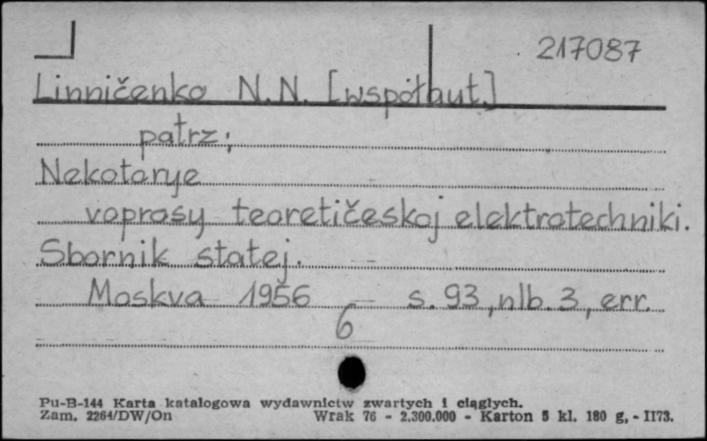 217087
Linničenko N.N. [współaut.]
patrz;
Nekotorye
voprosy teoretičeskoj elektrotechniki.
Sbornik statej.
Moskva 1956 — s. 93, nlb. 3, err.
6
Pu-B-144 Karta katalogowa wydawnictw zwartych i ciągłych.
Zam. 2264/DW/On Wrak 76 - 2.300.000 - Karton 5 kl. 180 g. - II73.